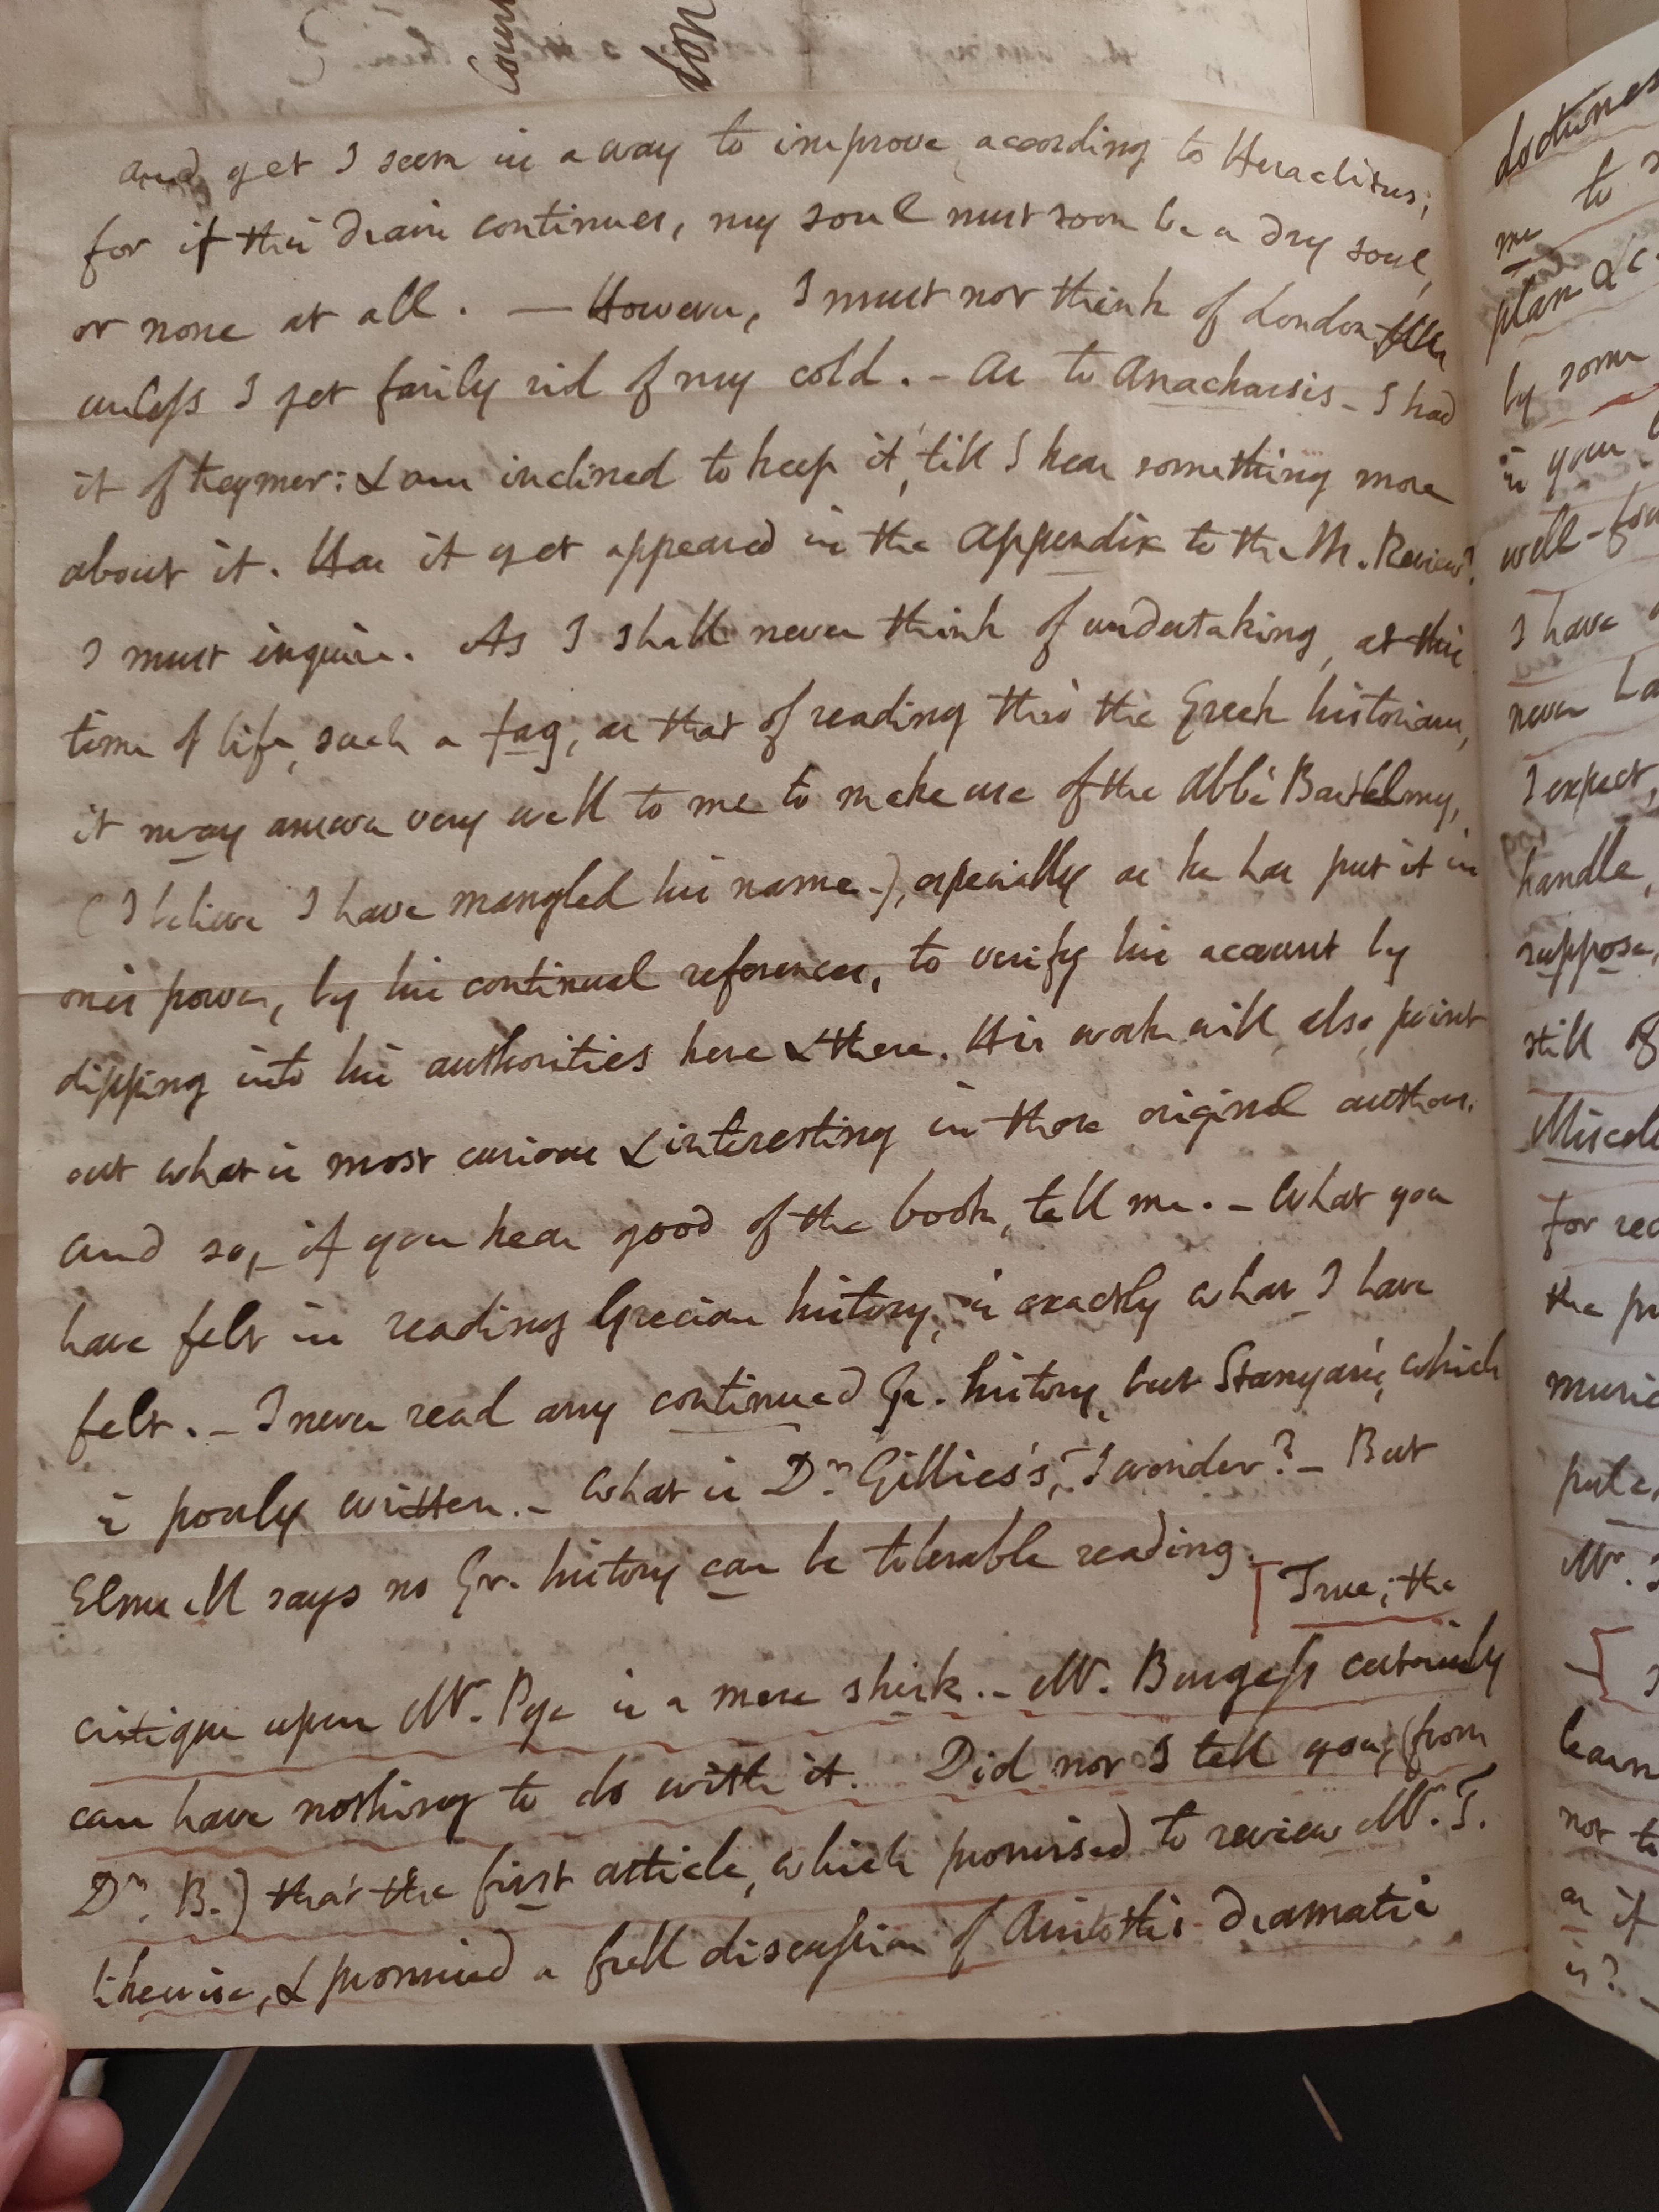 and yet I seem in a way to improve acording to Heraclitus;
for if this drain continues, my soul must soon be a dry soul,
or none at all. — However, I must not think of London
unless I get fairly rid of my cold. – As to Anacharsis – I had
it of Keymer: & am inclined to keep it, till I hear something more
about it. Has it yet appeared in the Appendix to the M. Review?
I must inquire. As I shall never think of undertaking, at this
time of life, such a fag, as that of reading thro' the Greek historians,
it may answer very well to me to make use of the Abbé Bartelmy,
(I believe I have mangled his name.), especially as he has put it in
one's power, by his continual references, to verify his account by
dipping into his authorities here & there. His work will also point
out what is most curious & interesting in those original authors.
And so, if you hear good of the book, tell me. – What you
have felt in reading Grecian history, is exactly what I have
felt. – I never read any continued Gr. history, but Stanyan's, which
is poorly written. – What is Dr. Gillies's, I wonder? – But
Elmsall says no Gr. history can be tolerable reading.
True; the
critique upon Mr. Pye is a mere shirk. – Mr. Burgess certainly
can have nothing to do with it. Did not I tell you, (from
Dr. B.) that the first article, which promised to review Mr. T.
likewise, & promised a full discussion of Aristotle's dramatic
doctrines
to
me
plan &c.
by some
in your
well-fou
I have
never ha
I expect,
handle,
suppose,
still of
Miscell
for rec
the pr
music
pule,
Mr.
learn
not to
as if
is? –